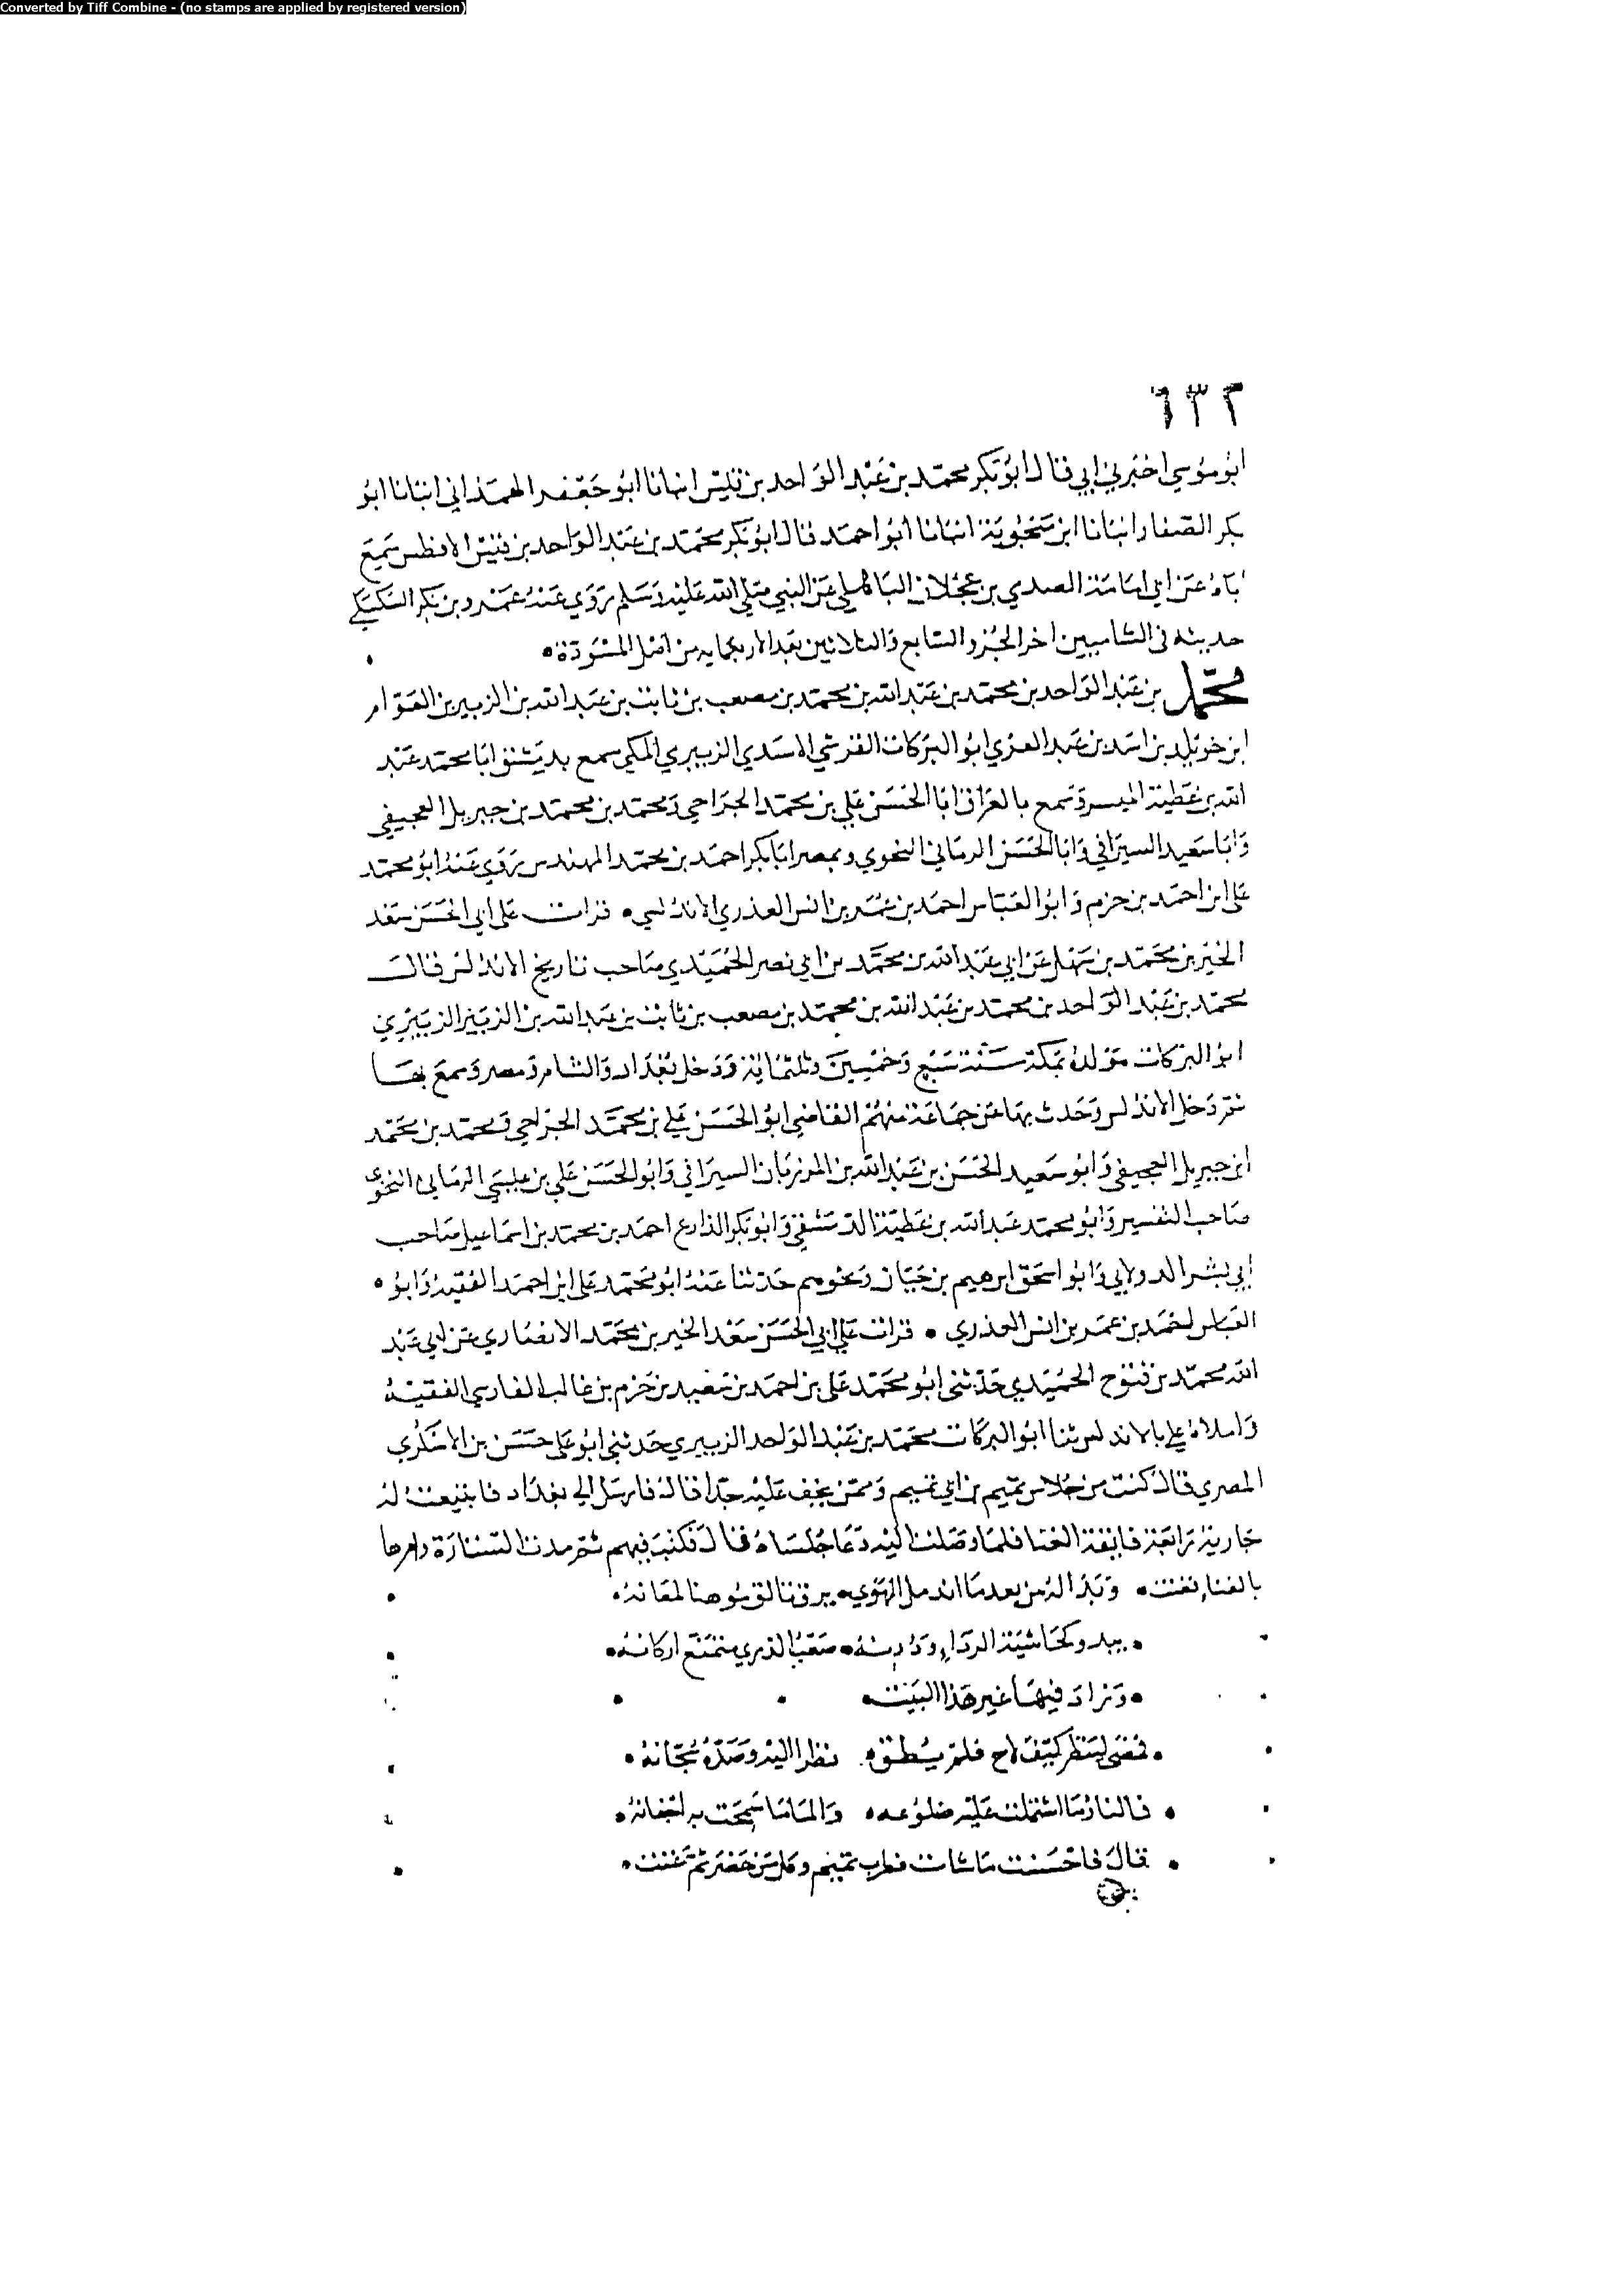 Converted by Tiff Combine - (no stamps are applied by registered version)
٦٣٢
ابو موسي اخبرني ابي قال ابو بكر محمد بن عبد الواحد بن قيس انبانا ابو جعفر الهمذاني انبانا ابو
بكر الصفار انبانا ابن منجويه انبانا ابو احمد قال ابو بكر محمد بن عبد الواحد بن قيس الافطس سمع
اباه عن ابي امامة الصدي بن عجلان الباهلي عن النبي صلي الله عليه وسلم روي عنه عمرو بن بكر السكسكي
حديثه في الشاميين اخر الجزو السابع والثلاثين بعد الاربعمايه من اصل المسودة
محمد بن عبد الواحد بن محمد بن عبد الله بن محمد بن مصعب بن ثابت بن عبد الله بن الزبير بن العوام
ابن خويلد بن اسد بن عبد العزي ابو البركات القرشي الاسدي الزبيري المكي سمع بدمشق ابا محمد عبد
الله بن عطية المفسر وسمع بالعراق ابا الحسن علي بن محمد الجراحي ومحمد بن محمد بن جبريل العجيفي
وابا سعيد السيرافي وابا الحسن الرماني النحوي وبمصر ابا بكر احمد بن محمد المهندس روي عنه ابو محمد
علي ابن احمد بن حزم وابو العباس احمد بن عمر بن انس العذري الاندلسي • قرات علي ابي الحسن سعد
الخير بن محمد بن سهل عن ابي عبد الله بن محمد بن ابي نصر الحميدي صاحب تاريخ الاندلس قال
محمد بن عبد الواحد بن محمد بن عبد الله بن محمد بن مصعب بن ثابت بن عبد الله بن الزبير الزبيري
ابو البركات مولده بمكة سنة سبع وخمسين وثلثماية ودخل بغداد والشام ومصر وسمع بها
ثم دخل الاندلس وحدث بها عن جماعة منهم القاضي ابو الحسن علي بن محمد الجراحي ومحمد بن محمد
ابن جبريل العجيفي وابو سعيد الحسن بن عبد الله بن المرزبان السيرافي وابو الحسن علي بن عيسي الرماني النحوي
صاحب التفسير وابو محمد عبد الله بن عطية الدمشقي وابو بكر الذارع احمد بن محمد بن اسماعيل صاحب
ابي بشر الدولابي وابو اسحق ابرهيم بن حبان ونحوهم حدثنا عنه ابو محمد علي ابن احمد الفقيه وابو
العباس احمد بن عمر بن انس العذري • قرات علي ابي الحسن سعد الخير بن محمد الانصاري عن ابي عبد
الله محمد بن فتوح الحميدي حدثني ابو محمد علي بن احمد بن سعيد بن حزم بن غالب الفارسي الفقيه
واملاه علي بالاندلس ثنا ابو البركات محمد بن عبد الواحد الزبيري حدثني ابو علي حسن بن الاشكري
المصري قال كنت من جلاس تميم بن ابي تميم وممن يخف عليه جدا قال فارسل الي بغداد فابتيعت له
جارية رائعة فايقة الغنا فلما وصلت اليه دعا جلساه قال فكنت فيهم ثم مدت الستارة وامرها
بالغناء فغنت • وبدا له من بعد ما اندمل الهوي • برق تالق موهنا لمعانه •
• يبدو كحاشية الرداء ودونه • صعب الذري متمنع اركانه •
• وزاد فيها غير هذا البيت •
• فمضي لينظر كيف لاح فلم يطق • نظرا اليه وصده سجانه •
• فالنار ما اشتملت عليه ضلوعه • والما ما سمحت به اجفانه •
• قال فاحسنت ما شات فطرب تميم وكل من حضر ثم غنت •